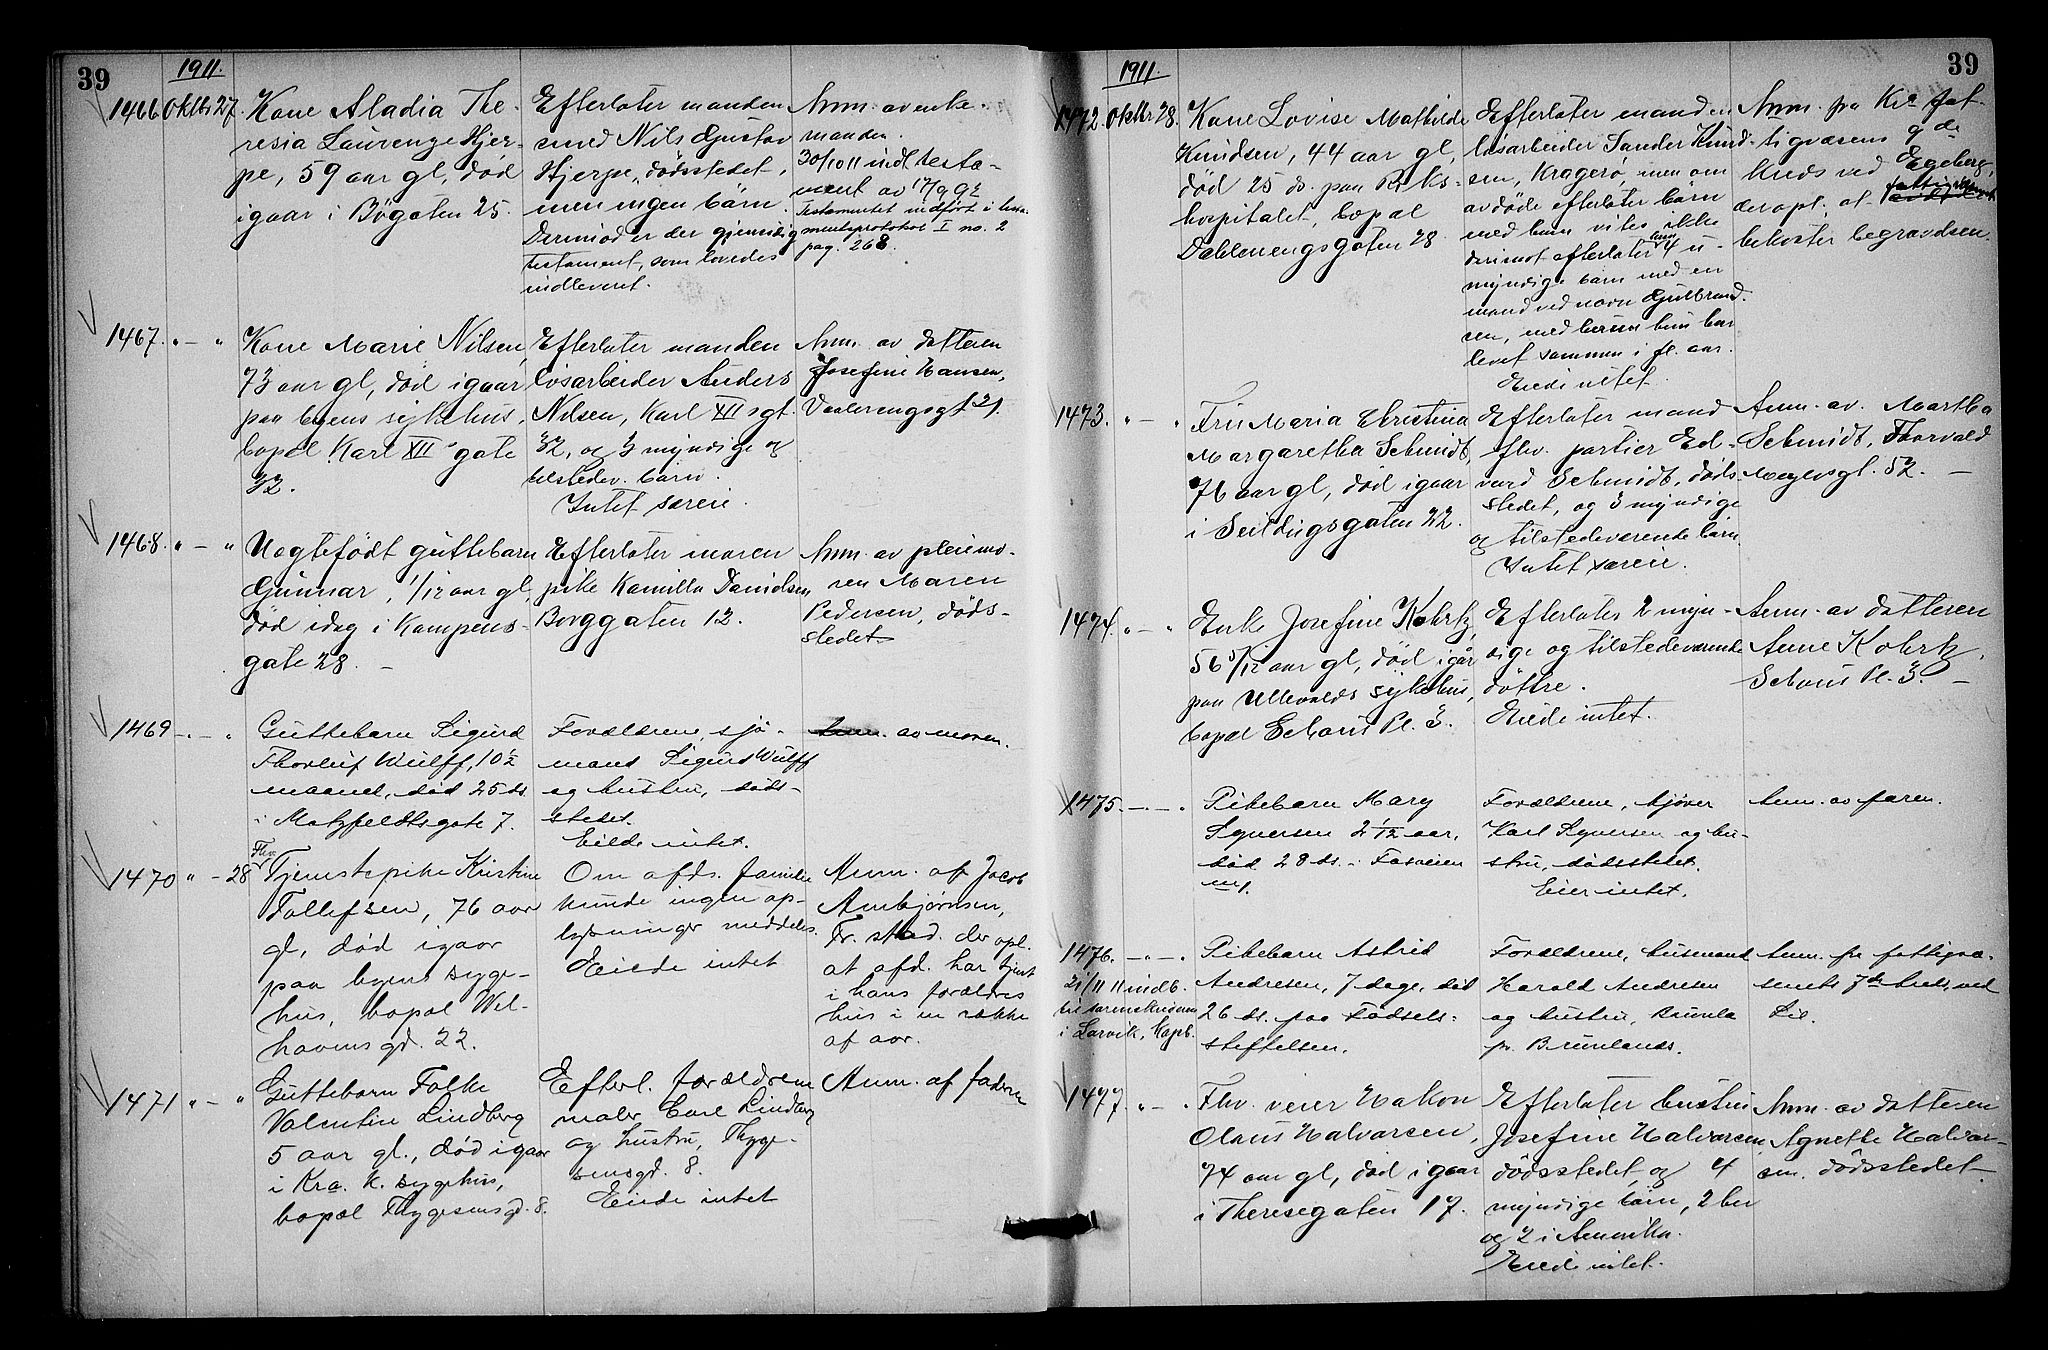 39
1911.
1466 Oktbr 27. Kone Aladia The-
resia Laurenze Hjer-
pe, 59 aar gl, död
igaar i Bögaten 25.
Efterlater manden
smed Nils Gustav
Hjerpe, dödsstedet,
men ingen börn.
Derimod er der gjensidig
testament, som lovedes
indleveret.
Anm. av enke-
manden.
30/10 11 indl. testa-
ment av 17/9 92
Testamentet indfört i testa-
mentsprotokol I no. 2
pag. 268.
1467. " - " Kone Marie Nilsen,
73 aar gl, död igaar
paa byens sykehus,
bopæl Karl XII gate
32.
Efterlater manden
lösarbeider Anders
Nilsen, Karl XII sgt.
32, og 3 myndige og
tilstedev. börn.
Intet særeie.
Anm. av datteren
Josefine Hansen,
Vaalerengsgt 21.
1468. " - " Uegtefödt guttebarn
Gunnar, 1/12 aar gl,
död idag i Kampens-
gate 28. -
Efterlater moren
pike Kamilla Danielsen,
Borggaten 12.
Anm. av pleiemo-
ren Maren
Pedersen, döds-
stedet
1469 - " - " Guttebarn Sigurd
Thorleif Wulff, 10 1/2
maaned, död 25 ds.
i Motzfeldtsgate 7.
Forældrene, sjö-
mand Sigurd Wulff
og hustru, döds-
stedet.
Eiede intet.
Anm. av moren.
1470 " - 28 Fhv.
Tjenestepike Kristine
Tollefsen, 76 aar
gl, död igaar
paa byens syge-
hus, bopæl Wel-
havensgd. 22.
Om afds. familie
kunde ingen op-
lysninger meddeles.
Eiede intet
Anm. af Jacob
Ambjørnsen,
Fr. stad. der opl.
at afd. har tjent
i hans forældres
hus i en række
af aar.
1471 " - " Guttebarn Folke
Valentin Lindberg
5 aar gl., død igaar
i Kra. k. sygehus,
bopæl Thygesensgd. 8.
Efterl. forældrene
maler Carl Lindberg
og hustru, Thyge-
sensgd. 8.
Eiede intet
Anm. af faderen
39
1911.
1472. Oktbr 28. Kone Lovise Mathilde
Knudsen, 44 aar gl,
död 25 ds. paa Riks-
hospitalet, bopæl
Dahlenengsgaten 28
Efterlater manden
lösarbeider Sander Knud-
sen, Kragerö, men om
avdöde efterlater börn
med ham vites ikke
derimot efterlater hun 4 u-
myndige børn med en
mand ved navn Gulbrand-
sen, med hvem hun har
levet sammen i fl. aar.
Eiede intet.
Anm. pr Kra fat-
tigvæsens 9 de
kreds ved Egeberg,
der opl. at fattigvæsenet
bekoster begravelsen.
1473. " - " Fru Maria Christina
Margaretha Schmidt,
76 aar gl, död igaar
i Seildugsgaten 22.
Efterlater mand
fhv. portier Ed-
vard Schmidt, döds-
stedet, og 3 myndige
og tilstedeværende börn.
Intet særeie.
Anm. av. Martha
Schmidt, Thorvald
Meyersgt. 52. -
1474. " - " Enke Josefine Kohrtz,
56 5/12 aar gl, död igår
paa Ullevaals sykehus,
bopæl Schous Pl. 3.
Efterlater 2 myn-
dige og tilstedeværende
döttre.
Eiede intet.
Anm. av datteren
Anne Kohrtz,
Schous Pl. 3. -
1475. - " - . Pikebarn Mary
Syversen 2 1/12 aar,
död 28 ds. i Fosveien
Forældrene, kjører
Karl Syversen og hu-
stru, dødsstedet.
Eier intet.
Anm. av faren.
1476. - " - . Pikebarn Astrid
Andresen, 7 dage, död
26 ds. paa Födsels-
stiftelsen.
21/11 11 indb.
til sorenskriveren
i Larvik, Kapt.
Forældrene, husmand
Harald Andresen
og hustru, Brunla
pr. Brunlanes.
Anm. fra fattigvæ-
senets 7de kreds, ved
Lie.
1477. " - . Fhv. veier Hakon
Olaus Halvorsen,
74 aar gl, död igaar
i Theresegaten 17.
Efterlater hustru
Josefine Halvorsen,
dödsstedet og 4
myndige börn, 2 her
og 2 i Amerika.
Eiede intet.
Anm. av datteren
Agnethe Halvor-
sen, dödsstedet